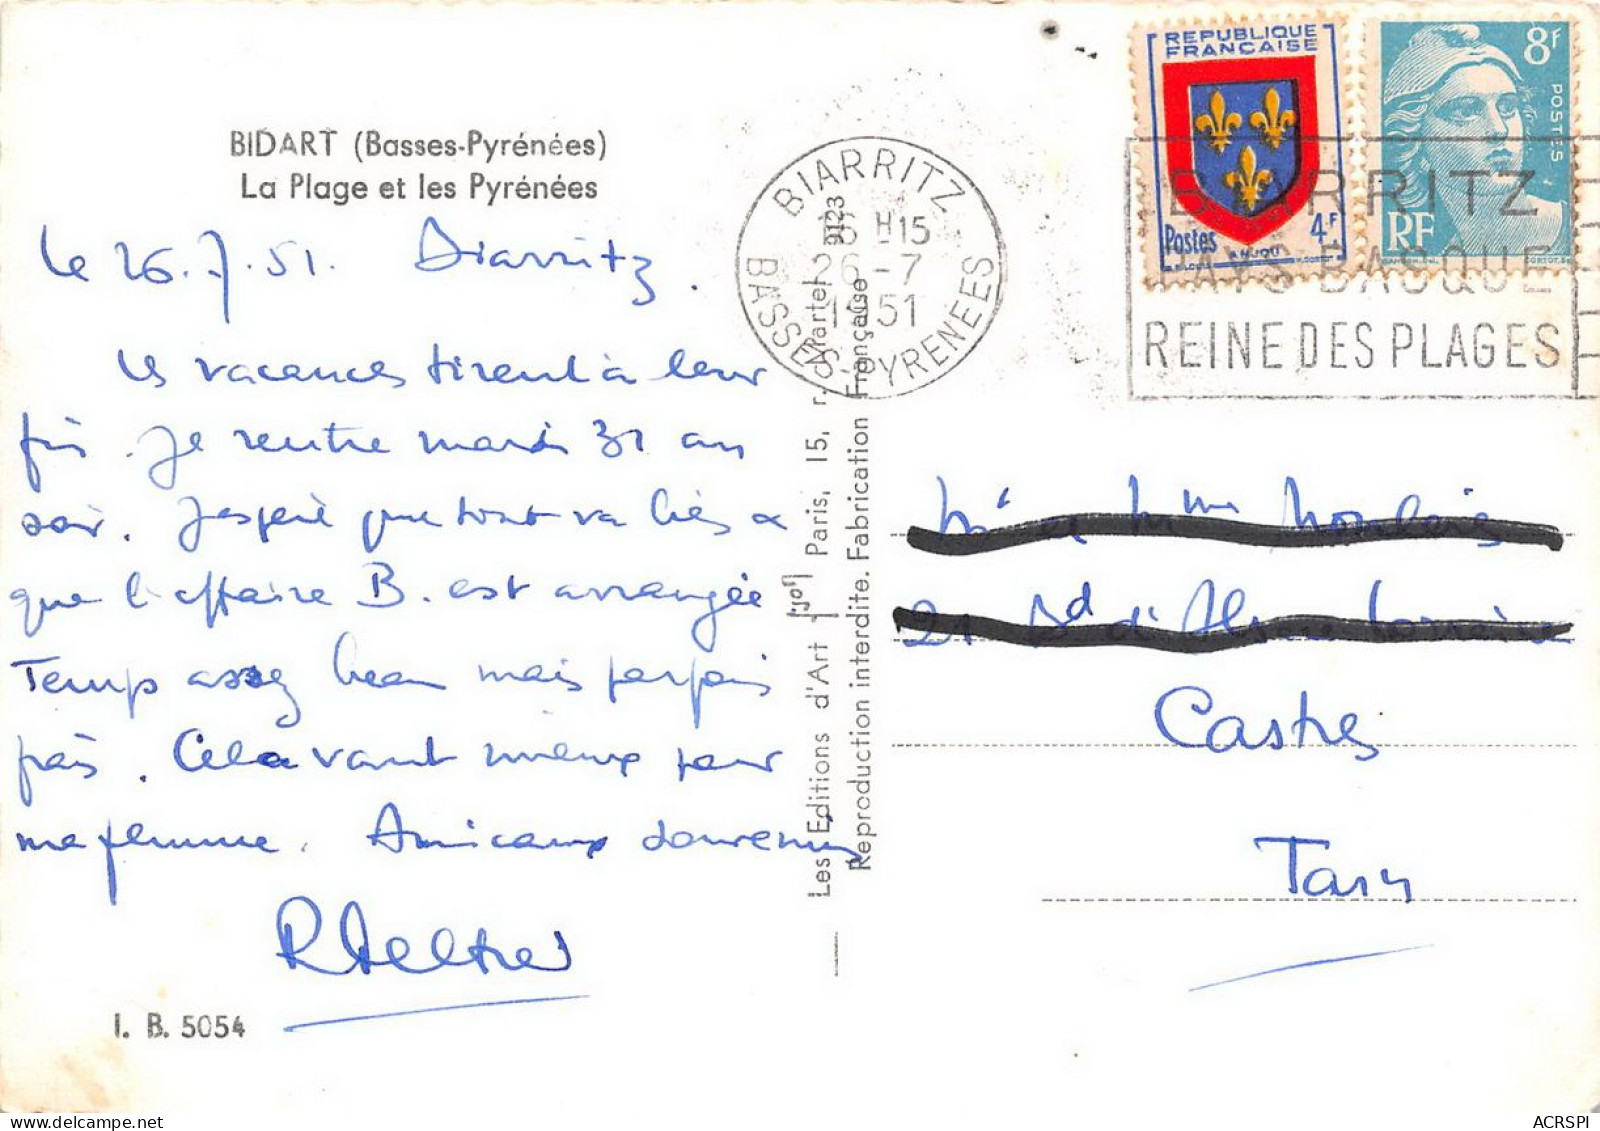 BIDART (Basses-Pyrénées)
La Plage et les Pyrénées
le 26.7.51. Biarritz.
Les vacances tirent à leur
fin. Je rentre mardi 31 au
soir. J'espère que tout va bien &
que l'affaire B. est arrangée
Temps assez beau mais parfois
frais. Cela vaut mieux pour
ma femme. Amicaux souvenirs
I. B. 5054
Les Editions d'Art "JOI" Paris, 15, r. Martel 9123
Reproduction interdite. Fabrication Française
BIARRITZ
16 H 15
26 - 7
1951
BASSES-PYRENEES
REPUBLIQUE
FRANÇAISE
Postes 4F
ANJOU
8F
POSTES
RF
BIARRITZ
PAYS BASQUE
REINE DES PLAGES
Castres
Tarn
ACRSPI